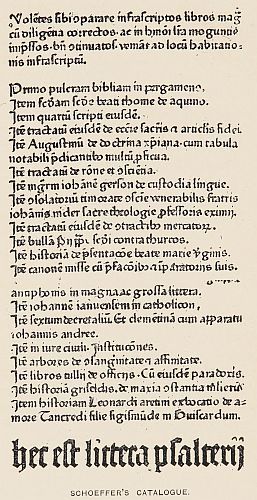 Volētes sibi cōparare infrascriptos libros magᷓ
cū diligētia correctos, ac in hmōi lr̄a moguntie
imp̄ssos, bn̄ cōtinuatos, veniāt ad locū habitatio-
nis infrascriptū.
Primo pulcram bibliam in pergameno.
Item scd̄am scd̄e beati thome de aquino.
Item quartū scripti eiusdē.
Itē tractatū eiusdē de eccīe sacrīs et articl̄is fidei.
Itē Augustinū de doctrina xp̄iana, cum tabula
notabili p̄dicantibo multū p̄ficua.
Itē tractatū de rōne et ꝯscientia.
Itē mgr̄m ioh̄anē gerson de custodia lingue.
Itē ꝯsolatoriū timorate ꝯscīe venerabilis fratris
iohānis nider sacre theologie p̄fessoris eximij.
Itē tractatū eiusdē de ꝯtractib mercatorꝝ.
Itē bullā pij pp̄ scd̄i contra thurcos.
Itē historiā de p̄sentacōe beate marie v̄ginis.
Itē canonē misse cū p̄facōib et īp̄atorijs suis.
anthiphonis in magna ac grossa littera.
Itē iohannē ianuensem in catholicon.
Itē sextum decretaliū. Et clemētinā cum apparatu
iohannis andree.
Itē in iure civili. Institucōnes.
Itē arbores de ꝯsangᷓnitate et affinitate.
Itē libros tullij de officijs. Cū eiusdem paradoxis.
Itē historiā griseldis, de maxīa ꝯstantia mlierū
Item historiam Leonardi aretini ex bocatio de a-
more Tancredi filie sigismūde in Guiscardum.
hec est littera psalterij
SCHOEFFER'S CATALOGUE.